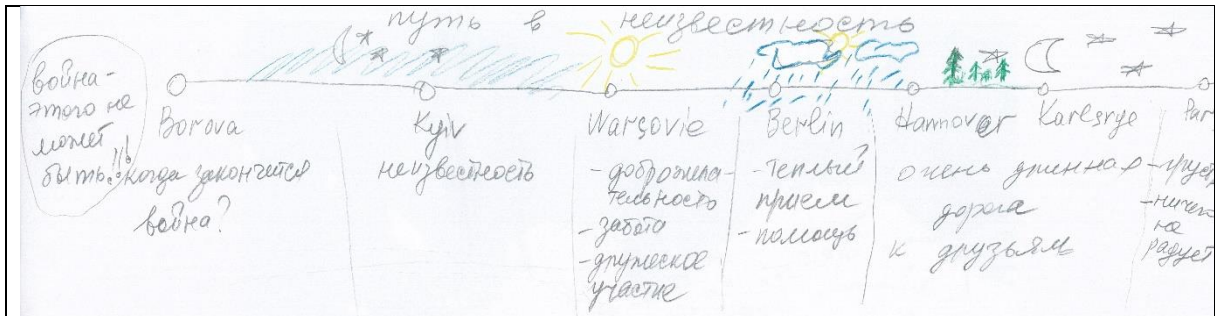 путь в неизвестность
война-
этого не
может
быть!!!
Borova
когда закончится
война?
Kyiv
неизвестность
Warsovie
- доброжела-
тельность
- забота
- дружеское
участие
Berlin
- теплый
прием
- помощь
Hannover
Karlsrye
очень длинная
дорога
к друзьям
Par
- груст
- ничег
не
радует